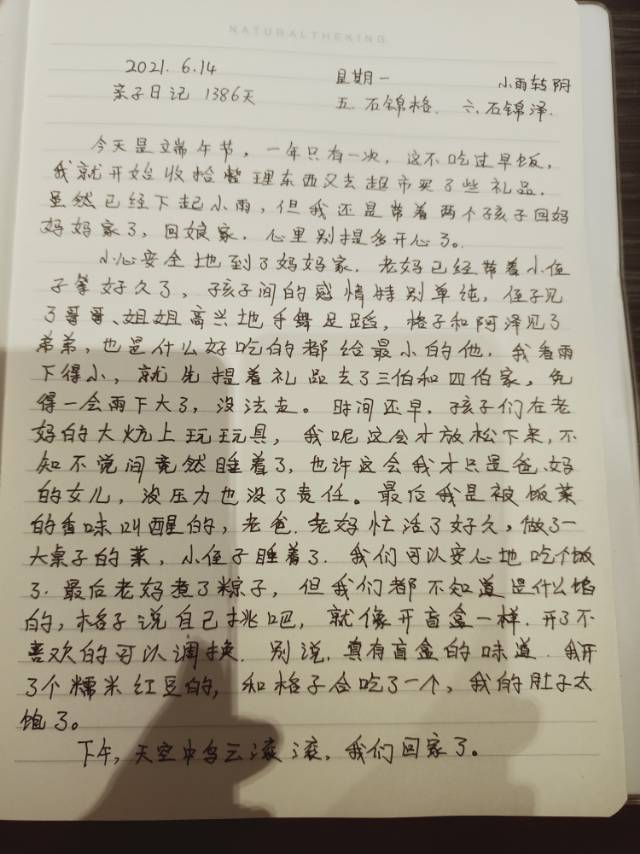 NATURALTHEKING
2021.6.14 星期一 小雨转阴
亲子日记 1386天 五.石锦格. 六.石锦泽.
今天是端午节，一年只有一次，这不吃过早饭，
我就开始收拾整理东西又去超市买了些礼品.
虽然已经下起小雨，但我还是带着两个孩子回妈
妈妈家了，回娘家.心里别提多开心了。
小心安全地到了妈妈家.老妈已经带着小侄
子等好久了，子孩子间的感情特别单纯，侄子见
了哥哥、姐姐高兴地手舞足蹈，格子和阿泽见了
弟弟，也是什么好吃的都给最小的他.我看雨
下得小，就先提着礼品去了三伯和四伯家，免
得一会雨下大了，没法走。时间还早.孩子们在老
妈的大炕上玩玩具，我呢这会才放松下来，不
知不觉间竟然睡着了，也许这会我才只是爸.妈
的女儿，没压力也没了责任。最后我是被饭菜
的香味叫醒的，老爸.老妈忙活了好久，做了一
大桌子的菜，小侄子睡着了.我们可以安心地吃个饭
了.最后老妈煮了粽子，但我们都不知道是什么馅
的，格子说自己挑吧，就像开盲盒一样.开了不
喜欢的可以调换.别说.真有盲盒的味道.我开
了个糯米红豆的，和格子合吃了一个，我的肚子太
饱了。
下午，天空中乌云滚滚，我们回家了。